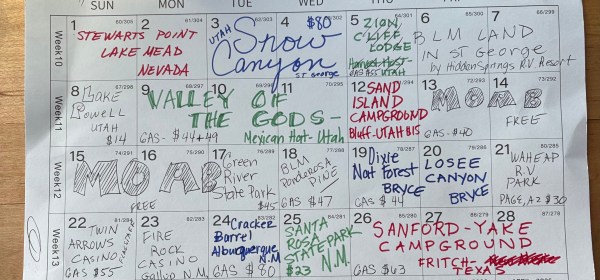 SUN MON
Week10
1 60/305
2 61/304
3 62/303
4 63/302
5 64/301
6 65/300
7 66/299
STEWARTS POINT
LAKE MEAD
NEVADA
UTAH
Snow
Canyon
ST. George
$80
ZION
CLIFF
LODGE
UTAH
BLM LAND
IN ST George
by Hidden Springs R.V. Resort
Week11
8 67/298
9 68/297
10 69/296
11 70/295
12 71/294
13 72/293
14 73/292
Lake
Powell
UTAH
$14
VALLEY OF
THE GODS-
GAS- $44+49
Mexican Hat- Utah
SAND
ISLAND
CAMPGROUND
Bluff-UTAH $15
MOAB
GAS-$40
FREE
Week12
15 74/291
16 75/290
17 76/289
18 77/288
19 78/287
20 79/286
21 80/285
MOAB
FREE
Green
River
State Park
$45
BLM
Ponderosa
PINE
GAS $47
Dixie
Nat Forest
BRYCE
GAS $44
LOSEE
CANYON
BRYCE
WAHEAP
R.V
PARK
PAGE, AZ $30
Week13
22 81/284
23 82/283
24 83/282
25 84/281
26 85/280
27 86/279
28 87/278
TWIN
ARROWS
CASINO
FLAGSTAFF
GAS $55
FIRE
ROCK
CASINO
Gallup N.M.
Cracker
Barrel
Albuquerque
N.M.
GAS $80
SANTA
ROSA
STATE PARK
$23 N.M.
SANFORD-YAKE
CAMPGROUND
FRITCH-
TEXAS
GAS $63